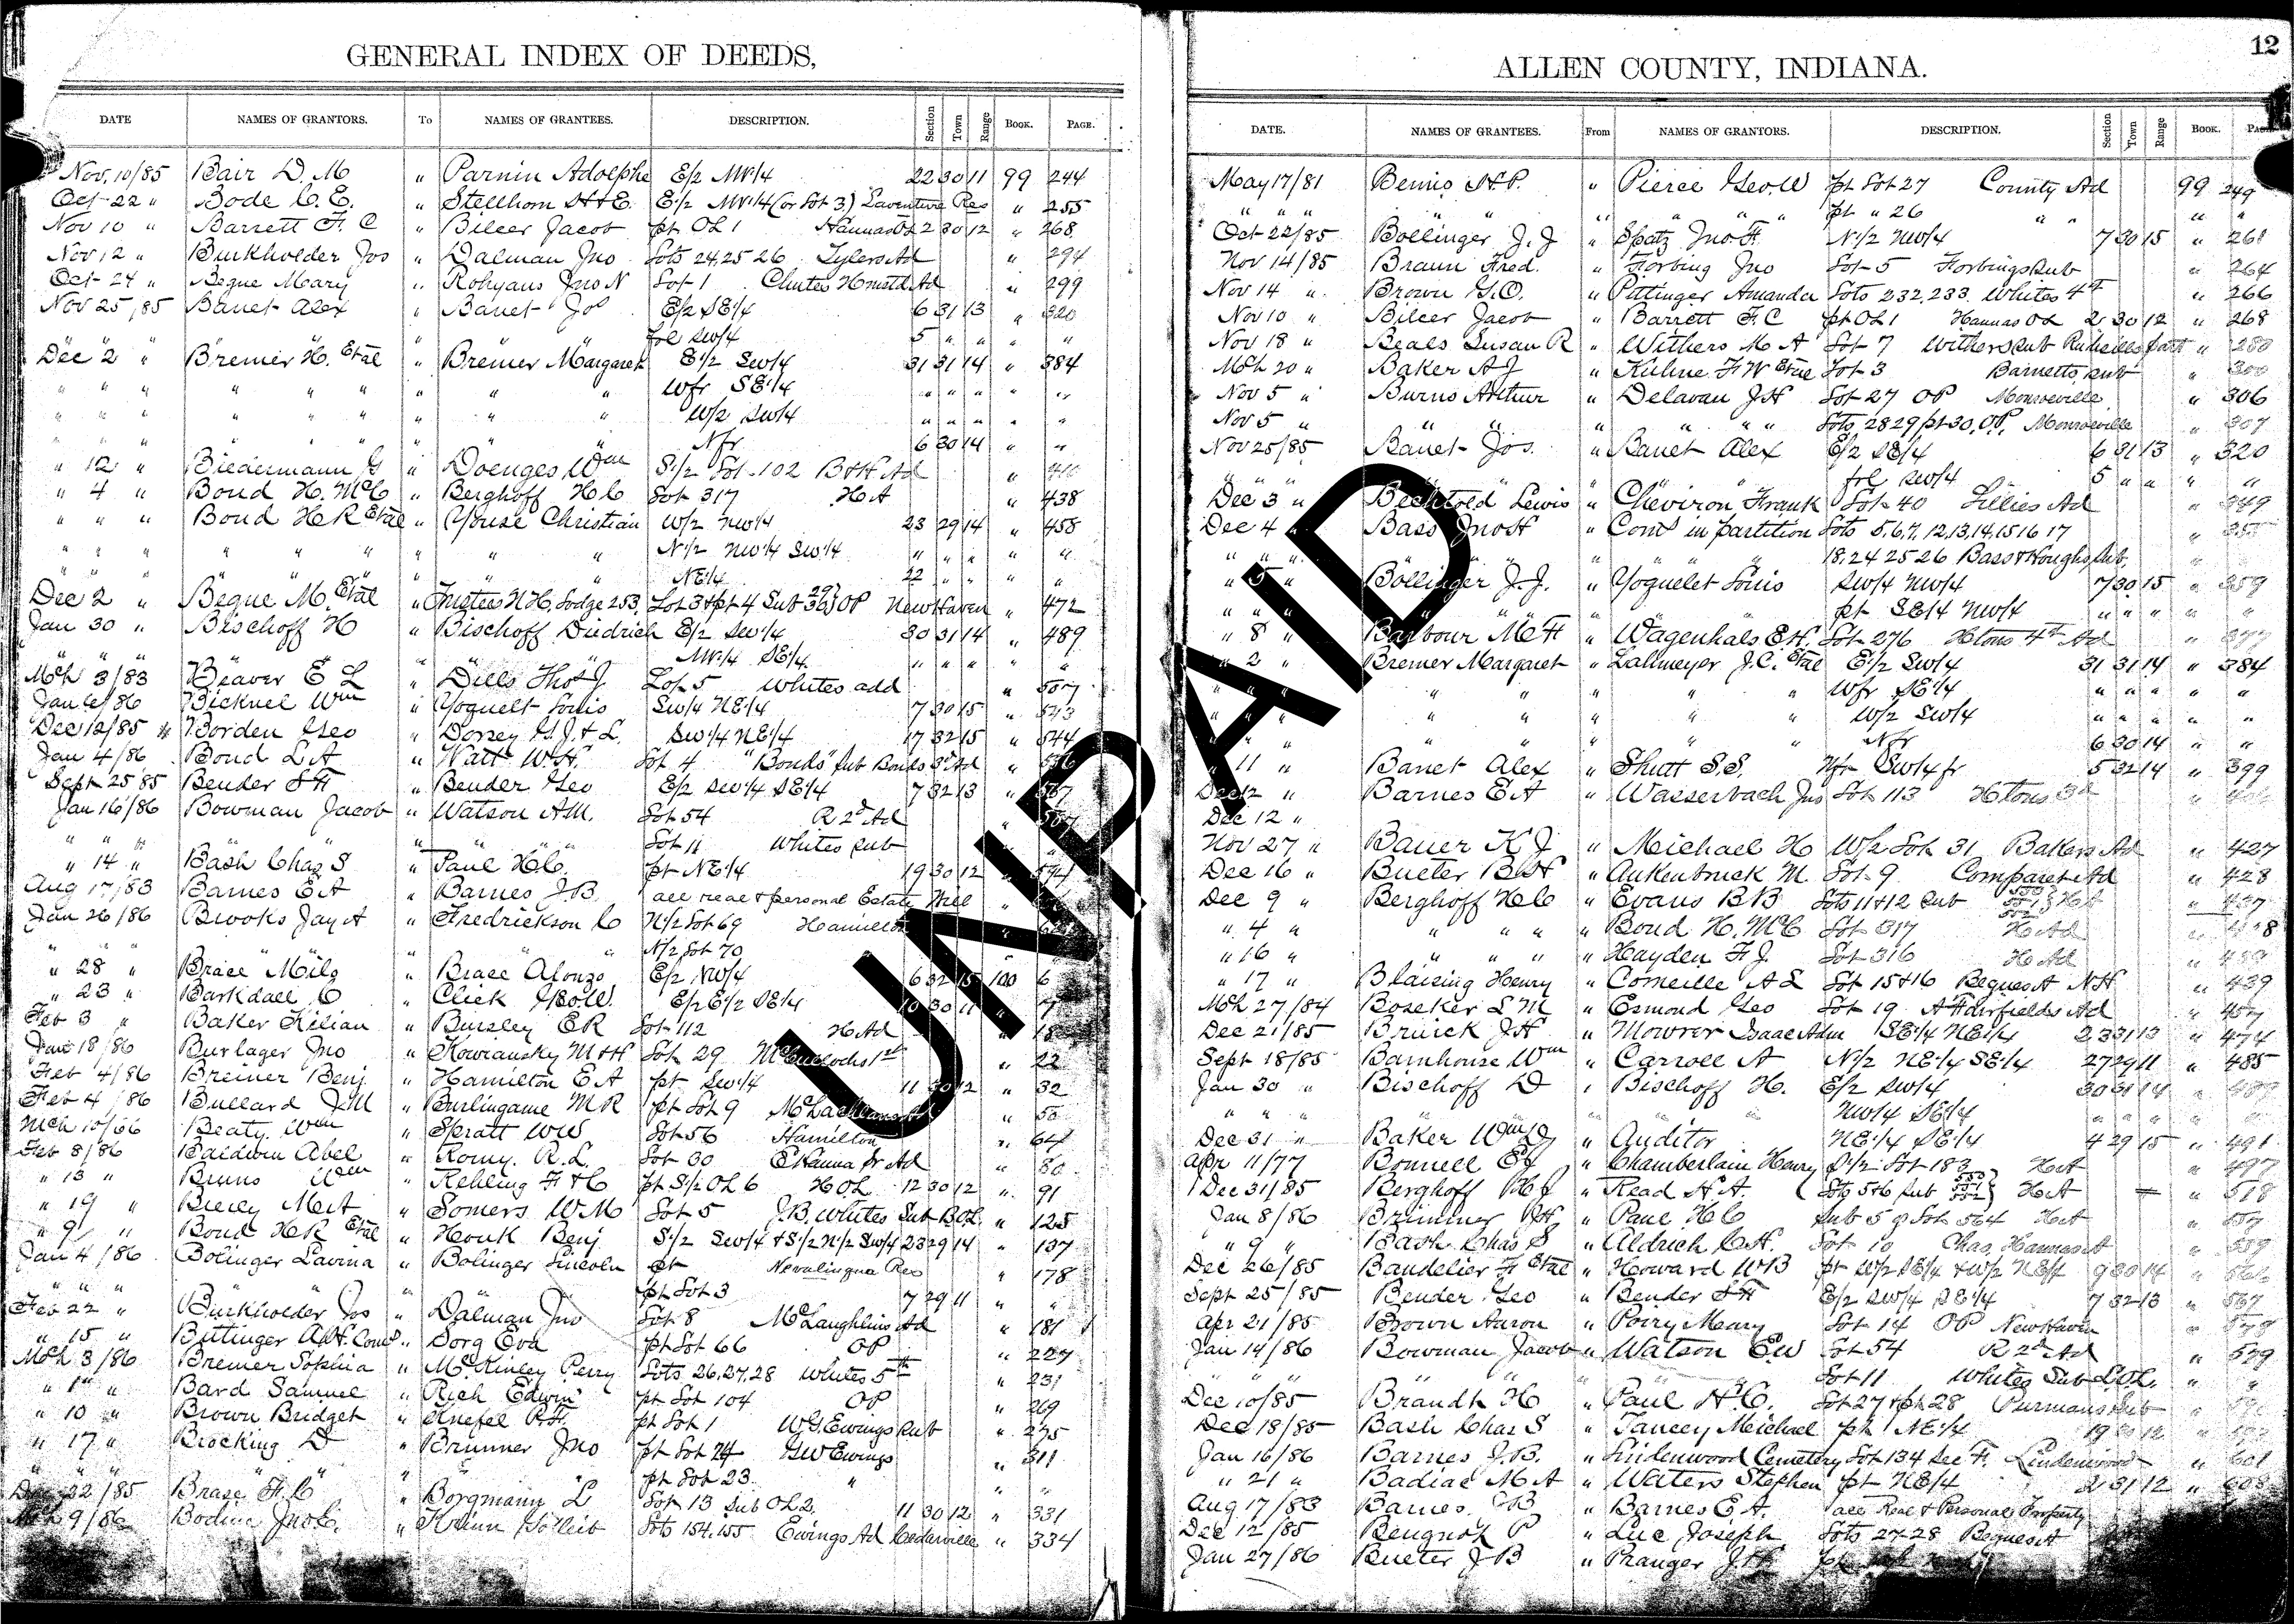 GENERAL INDEX OF DEEDS,
DATE NAMES OF GRANTORS. To NAMES OF GRANTEES. DESCRIPTION. Section Town Range BOOK. PAGE.
Nov. 10/85 Bair D. M " Parnin Adolphe E/2 NW1/4 22 30 11 99 244
Oct 22 " Bode C. E. " Stellhorn H & E. E1/2 NW1/4 (or Lot 3) Laventure Res " 255
Nov 10 " Barrett F. C " Bilcer Jacob pt OL 1 Hannas OL 2 30 12 " 268
Nov 12 " Burkholder Jos " Dalman Jno Lots 24, 25 26 Tylers Ad " 294
Oct 24 " Beque Mary " Rohyans Jno N Lot 1 Chutes Hmstd Ad " 299
Nov 25, 85 Banet Alex " Banet Jos E/2 SE1/4 6 31 13 " 320
frl SW/4 5 " " " "
Dec 2 " Bremer H. Etal " Bremer Margaret E1/2 SW/4 31 31 14 " 384
" " " " " " " " " Wfr SE1/4 " " " " "
" " " " " " " " " W/2 SW/4 " " " " "
" " " " " " " " " Nfr 6 30 14 " "
" 12 " Biedermann G " Doenges Wm S1/2 Lot 102 B & H Ad "
" 4 " Bond H. McC " Berghoff H C Lot 317 H A " 438
" " " Bond H R Etal " Youse Christian W/2 NW/4 23 29 14 " 458
" " " " " " " " " N1/2 NW1/4 SW1/4 " " " " "
" " " " " " " NE1/4 22 " " " "
Dec 2 " Beque M. Etal " Trustees N H. Lodge 253, Lot 3 & pt 4 Sub OP New Haven " 472
Jan 30 " Bischoff H " Bischoff Diedrich E/2 SW1/4 30 31 14 " 489
" " " " " " NW1/4 SE1/4 " " " " "
Mch 3/83 Beaver E L " Dills Thos J. Lot 5 Whites add " 507
Jan 6/86 Bicknel Wm " Yoguelt Louis SW/4 NE1/4 7 30 15 " 543
Dec 12/85 Borden Geo " Dorsey G. J. & L. SW1/4 NE1/4 17 32 15 " 544
Jan 4/86 Bond L A " Watt W. H. Lot 4 "Bonds" sub Bonds 3d Ad "
Sept 25 85 Bender S H " Bender Geo E/2 SW1/4 SE1/4 7 32 13 " 567
Jan 16/86 Bowman Jacob " Watson A.M. Lot 54 R 2d Ad "
" " " " Lot 11 Whites sub
" 14 " Bash Chas S " Paul H C. pt NE1/4 19 30 12 " 594
Aug 17/83 Barnes E A " Barnes J. B. all real & personal Estate Will
Jan 26/86 Brooks Jay A " Fredrickson C N1/2 Lot 69 Hamilton
" " " " " " N/2 Lot 70
" 28 " Brace Milo " Brace Alonzo E/2 NW/4 6 32 15 100 6
" 23 " Barkdall C " Click Geo W. E/2 E1/2 SE1/4 10 30 11 " 7
Feb 3 " Baker Kilian " Bursley E R Lot 112 H Ad " 18
Jan 18/86 Burlager Jno " Kowransky M & H Lot 29 McCullochs 1st " 22
Feb 4/86 Breiner Benj. " Hamilton E A pt SW1/4 11 30 12 " 32
Feb 4/86 Bullard J. M " Burlingame M R pt Lot 9 McLachlans Ad " 50
Mch 10/66 Beaty. Wm " Spratt WW Lot 56 Hamilton " 64
Feb 8/86 Baldwin Abel " Romy. R. L. Lot 30 E Hanna Sr Ad " 80
" 13 " Bruns Wm " Rehling F & C pt S1/2 OL 6 H OL 12 30 12 " 91
" 19 " Bierly M A " Somers W. M Lot 5 J. B. Whites Sub B OL " 125
" 9 " Bond H R Etal " Houk Benj S1/2 SW/4 & S1/2 N1/2 SW/4 23 29 14 " 137
Jan 4/86 Bolinger Lavina " Bolinger Lincoln pt Nevalingua Res " 178
" " " " pt Lot 3 7 29 11 " "
Feb 22 " Burkholder Jos " Dalman Jno Lot 8 McLaughlins Ad " 181
" 15 " Bittinger A. H. Comr " Dorg Eva pt Lot 66 OP " 227
Mch 3/86 Bremer Sophia " McKinley Perry Lots 26, 27, 28 Whites 5th " 231
" 1 " Bard Samuel " Rich Edwin pt Lot 104 OP " 269
" 10 " Brown Bridget " Knefel P. H. pt Lot 1 W. G. Ewings sub " 275
" 17 " Brocking D " Brunner Jno pt Lot 24 G W Ewings " 311
" " " " " pt Lot 23. " " "
Dec 22/85 Brase F. C " Borgmann L Lot 13 sub OL 2 11 30 12 " 331
Mch 9/86 Bodine Jno C. " Kuhn Gottlieb Lots 154, 155 Ewings Ad Cedarville " 334
ALLEN COUNTY, INDIANA.
12
DATE. NAMES OF GRANTEES. From NAMES OF GRANTORS. DESCRIPTION. Section Town Range BOOK. PAGE
May 17/81 Bemis H. P. " Pierce Geo. W pt Lot 27 County Ad 99 249
" " " " " " " " pt " 26 " " " "
Oct 22/85 Bollinger J. J " Spatz Jno F. N1/2 NW/4 7 30 15 " 261
Nov 14/85 Braun Fred. " Forbing Jno Lot 5 Forbings sub " 264
Nov 14 " Brown G. O. " Pittinger Amanda Lots 232, 233 Whites 4th " 266
Nov 10 " Bilcer Jacob " Barrett F. C pt OL 1 Hannas OL 2 30 12 " 268
Nov 18 " Beals Susan R " Withers M A Lot 7 Withers sub Rudisills part " 280
Mch 20 " Baker A J " Kuhne F W Etal Lot 3 Barnetts sub " 300
Nov 5 " Burns Arthur " Delavan J H Lot 27 OP Monroeville " 306
Nov 5 " " " " " " " Lots 28 29/pt 30, O.P. Monroeville " 307
Nov 25/85 Banet Jos. " Banet Alex E/2 SE/4 6 31 13 " 320
" " " " " " " frl SW/4 5 " " " "
Dec 3 " Bechtold Lewis " Cheviron Frank Lot 40 Lillies Ad " 349
Dec 4 " Bass Jno H " Comr in partition Lots 5, 6, 7, 12, 13, 14, 15 16 17 "
" " " " " " " " 18, 24 25 26 Bass & Houghs sub,
" 5 " Bollinger J. J. " Yoguelet Louis SW/4 NW/4 7 30 15 " 359
" " " " " " " pt SE1/4 NW/4 " " " " "
" 8 " Barbour M H " Wagenhals E. H. Lot 276 Htons 4th Ad "
" 2 " Bremer Margaret " Lahmeyer J. C. Etal E1/2 SW/4 31 31 14 " 384
" " " " " " " " Wfr SE1/4 " " " " "
" " " " " " " " W/2 SW/4 " " " " "
" " " " " " Nfr 6 30 14 " "
" 11 " Banet Alex " Shutt S. S. Nfr SW1/4 fr 5 32 14 " 399
Dec 12 " Barnes E A " Wasserbach Jno Lot 113 Htons 3d
Dec 12 "
Nov 27 " Bauer K J " Michael H W/2 Lot 31 Bakers Ad " 427
Dec 16 " Bueter B H " Ankenbruck M. Lot 9 Comparet Ad " 428
Dec 9 " Berghoff H C " Evans B B Lots 11 & 12 Sub 550 551 552 } H A " 437
" 4 " " " " " Bond H. McC Lot 317 H Ad "
" 16 " " " " " Hayden F. J. Lot 316 H Ad "
" 17 " Blaising Henry " Corneille A L Lot 15 & 16 Beques A N H " 439
Mch 27/84 Boseker S M " Esmond Geo Lot 19 A Hairfields Ad " 457
Dec 21/85 Bruick J H " Mowrer Isaac Adm SE1/4 NE1/4 23 31 13 " 474
Sept 18/85 Barnhouse Wm " Carroll A N1/2 NE1/4 SE1/4 27 29 11 " 485
Jan 30 " Bischoff D " Bischoff H. E/2 SW/4 30 31 14 " 489
" " " " " NW/4 SE1/4 " " " "
Dec 31 " Baker Wm D " Auditor NE1/4 SE1/4 4 29 15 " 491
Apr 11/77 Bonnell E J " Chamberlain Henry S1/2 Lot 183 H A " 497
Dec 31/85 Berghoff H J " Read H. A. Lots 5 & 6 Sub 550 551 552 } H A " 518
Jan 8/86 Brimmer P H " Paul H C Sub 5 of Lot 564 H A " 557
" 9 " Bash Chas S " Aldrich C H. Lot 10 Chas. Hannas A " 559
Dec 26/85 Baudelier F Etal " Howard W B pt W/2 SE/4 & W/2 NE/4 9 30 14 " 566
Sept 25/85 Bender Geo " Bender S H E/2 SW/4 SE1/4 7 32 13 " 567
Apr 21/85 Brown Aaron " Poiry Mary Lot 14 OP New Haven "
Jan 14/86 Bowman Jacob " Watson E W Lot 54 R 2d Ad " 579
" " " " " Lot 11 Whites Sub L. OL. " "
Dec 10/85 Brandt H " Paul H. C. Lot 27 & pt 28 Purmans sub "
Dec 18/85 Bash Chas S " Yancey Michael pt NE1/4 19 30 12 "
Jan 16/86 Barnes J. B. " Lindenwood Cemetery Lot 134 Sec F. Lindenwood " 601
" 21 " Badiac M A " Waters Stephen pt NE/4 2 31 12 " 608
Aug 17/83 Barnes J B " Barnes E. A. all Real & Personal Property
Dec 12/85 Beugnot P " Luc Joseph Lots 27-28 Beques A
Jan 27/86 Bueter J B " Pranger J.
UNPAID